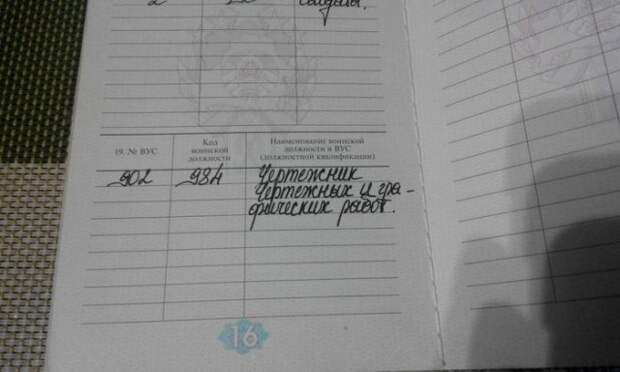 2 солдаты.
19. № ВУС
Код воинской должности
Наименование воинской должности и ВУС (должностной квалификации)
902 984 Чертежник
чертежных и гра-
фических работ.
16